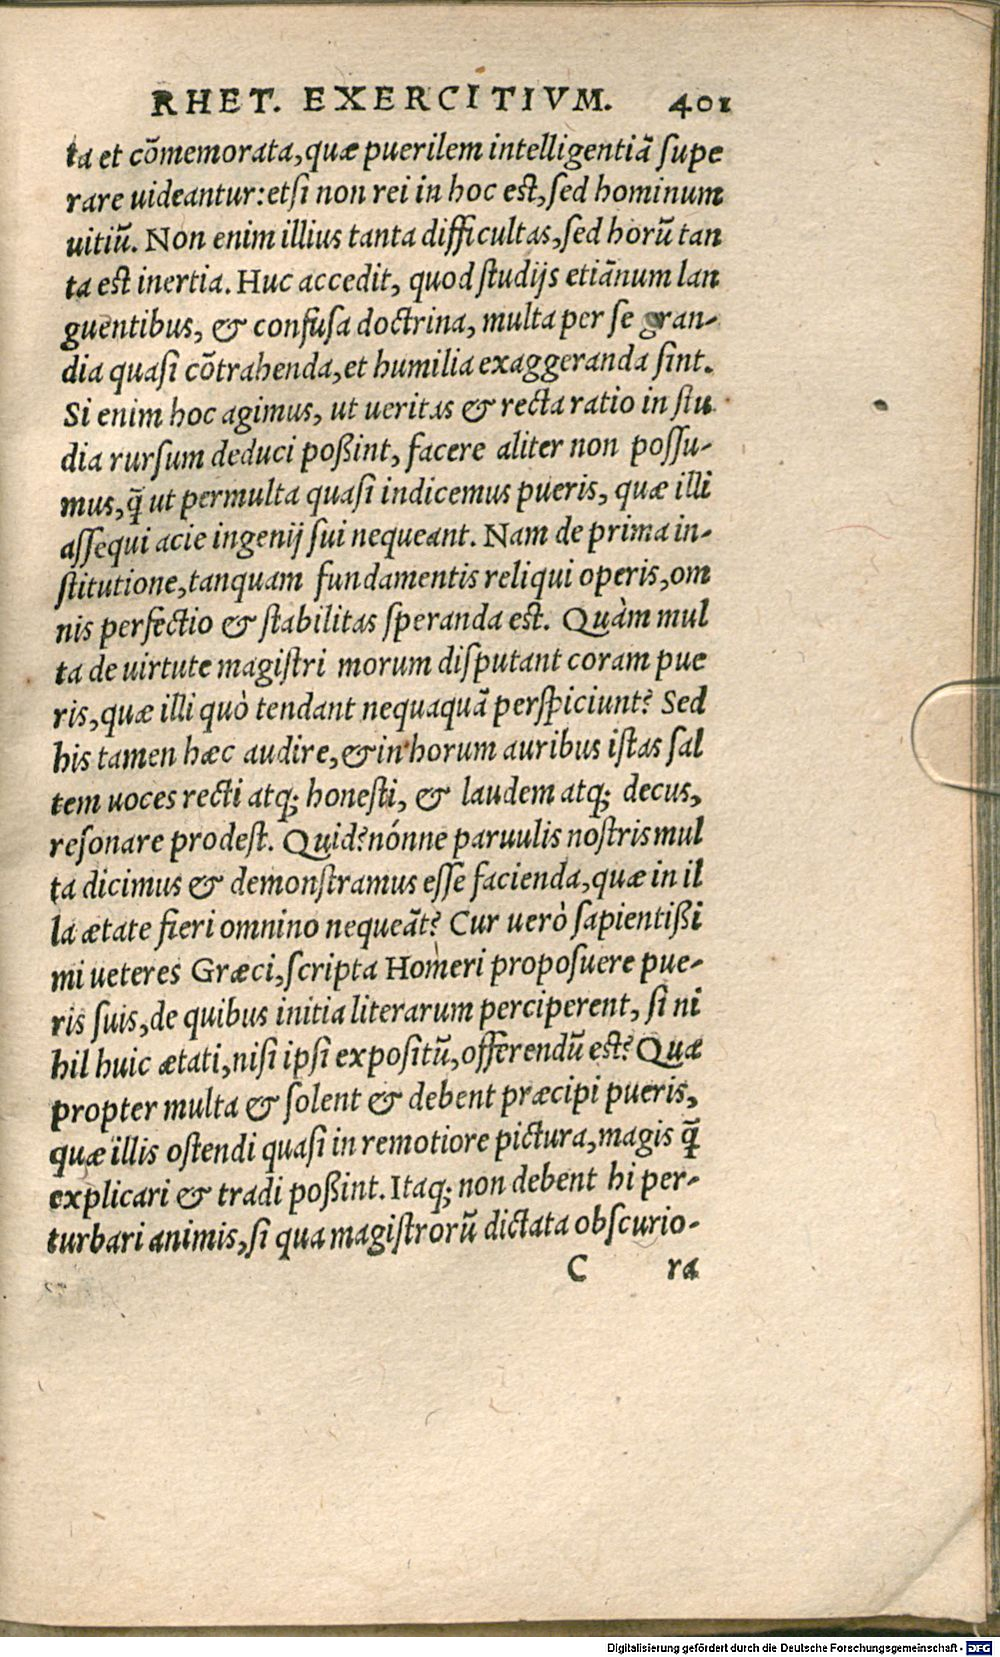 RHET. EXERCITIVM. 401
ta et cõmemorata, quæ puerilem intelligentiã ſupe
rare uideantur: etſi non rei in hoc est, ſed hominum
uitiũ. Non enim illius tanta difficultas, ſed horũ tan
ta est inertia. Huc accedit, quod ſtudijs etiãnum lan
guentibus, & confuſa doctrina, multa per ſe gran-
dia quaſi cõtrahenda, et humilia exaggeranda ſint.
Si enim hoc agimus, ut ueritas & recta ratio in ſtu
dia rurſum deduci poßint, facere aliter non poſſu-
mus, q̃ ut permulta quaſi indicemus pueris, quæ illi
aſſequi acie ingenij ſui nequeant. Nam de prima in-
ſtitutione, tanquam fundamentis reliqui operis, om
nis perfectio & ſtabilitas ſperanda est. Quàm mul
ta de uirtute magiſtri morum diſputant coram pue
ris, quæ illi quò tendant nequaquã perſpiciunt? Sed
his tamen hæc audire, & in horum auribus iſtas ſal
tem uoces recti atq; honeſti, & laudem atq; decus,
reſonare prodeſt. Quid? nónne paruulis noſtris mul
ta dicimus & demonſtramus eſſe facienda, quæ in il
la ætate fieri omnino nequeãt? Cur uerò ſapientißi
mi ueteres Græci, ſcripta Homeri propoſuere pue-
ris ſuis, de quibus initia literarum perciperent, ſi ni
hil huic ætati, niſi ipſi expoſitũ, offerendũ est? Quæ
propter multa & ſolent & debent præcipi pueris,
quæ illis oſtendi quaſi in remotiore pictura, magis q̃
explicari & tradi poßint. Itaq; non debent hi per-
turbari animis, ſi qua magiſtrorũ dictata obſcurio-
C ra
Digitalisierung gefördert durch die Deutsche Forschungsgemeinschaft - DFG